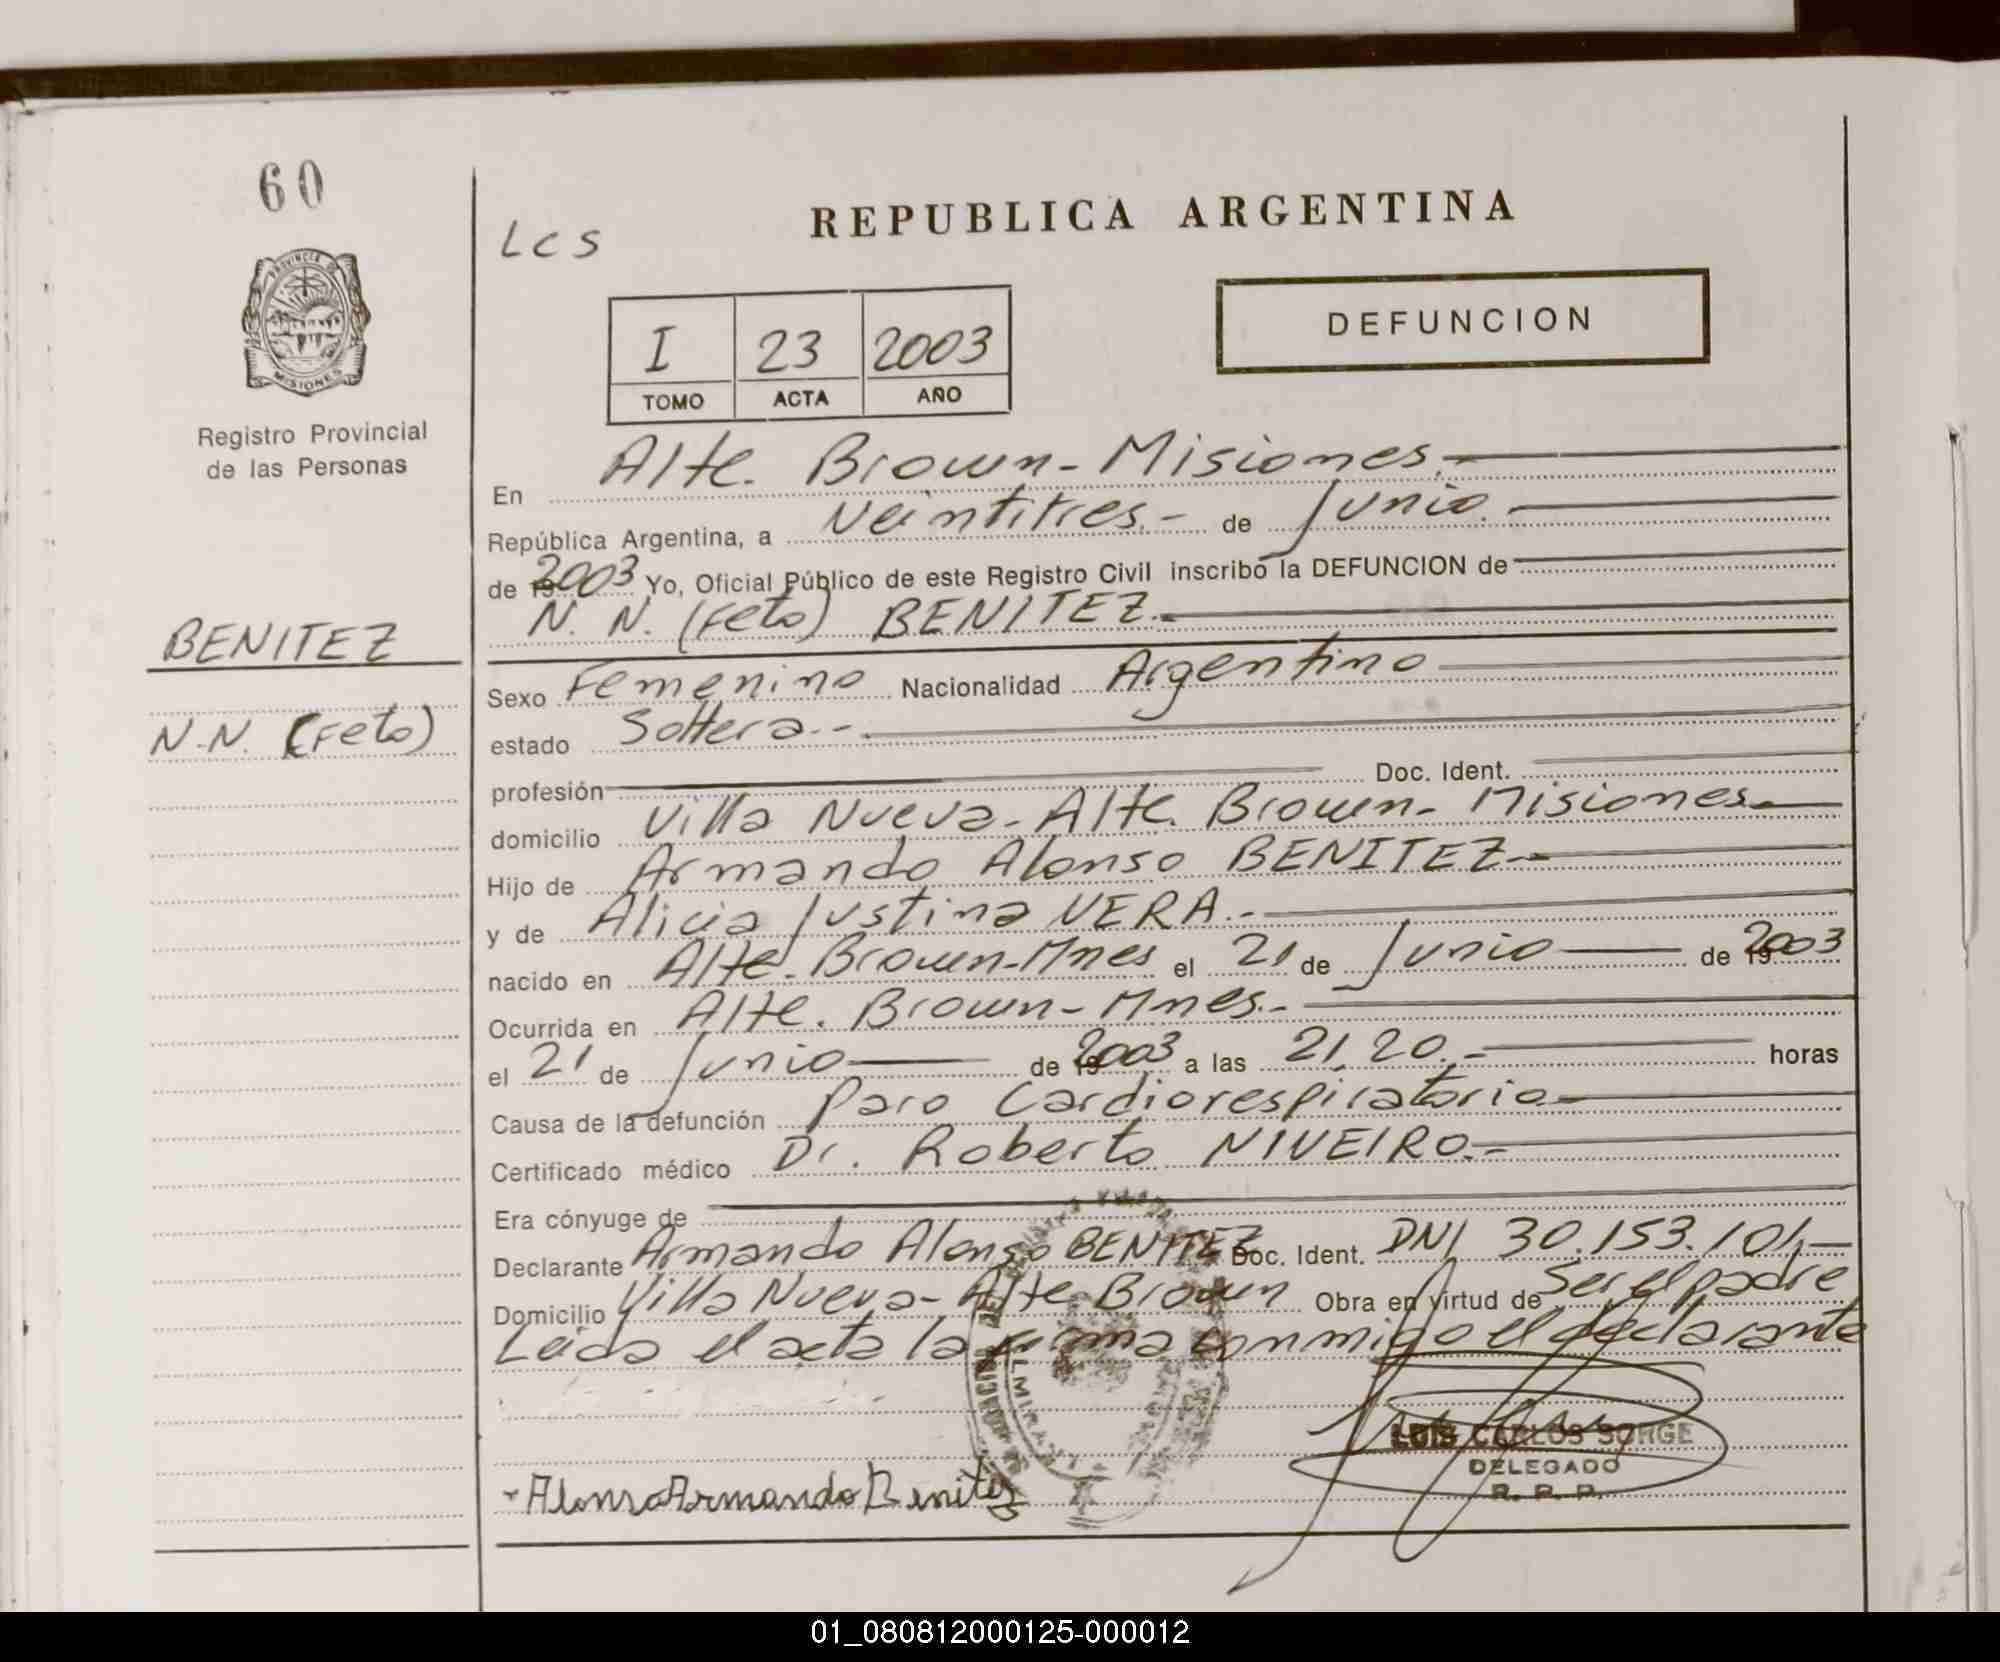 60
PROVINCIA DE
MISIONES
Registro Provincial
de las Personas
BENITEZ
N.N. (Feto)
Lcs
REPUBLICA ARGENTINA
I 23 2003
TOMO ACTA AÑO
DEFUNCION
En Alte. Brown - Misiones.-
República Argentina, a Veintitres.- de Junio.
de 2003 Yo, Oficial Público de este Registro Civil inscribo la DEFUNCION de
N. N. (Feto) BENITEZ.-
Sexo Femenino Nacionalidad Argentino
estado Soltera.-
profesión Doc. Ident.
domicilio Villa Nueva - Alte. Brown - Misiones
Hijo de Armando Alonso BENITEZ
y de Alicia Justina VERA.-
nacido en Alte. Brown-Mnes el 21 de Junio de 2003
Ocurrida en Alte. Brown - Mnes.-
el 21 de Junio de 2003 a las 21,20.- horas
Causa de la defunción Paro Cardiorespiratorio
Certificado médico Dr. Roberto NIVEIRO.-
Era cónyuge de
Declarante Armando Alonso BENITEZ Doc. Ident. DNI 30.153.101,-
Domicilio Villa Nueva - Alte Brown Obra en virtud de Ser el padre
Leida el acta la firma conmigo el declarante
LUIS CARLOS SORGE
DELEGADO
R. P. P.
- Alonso Armando Benitez
01_080812000125-000012